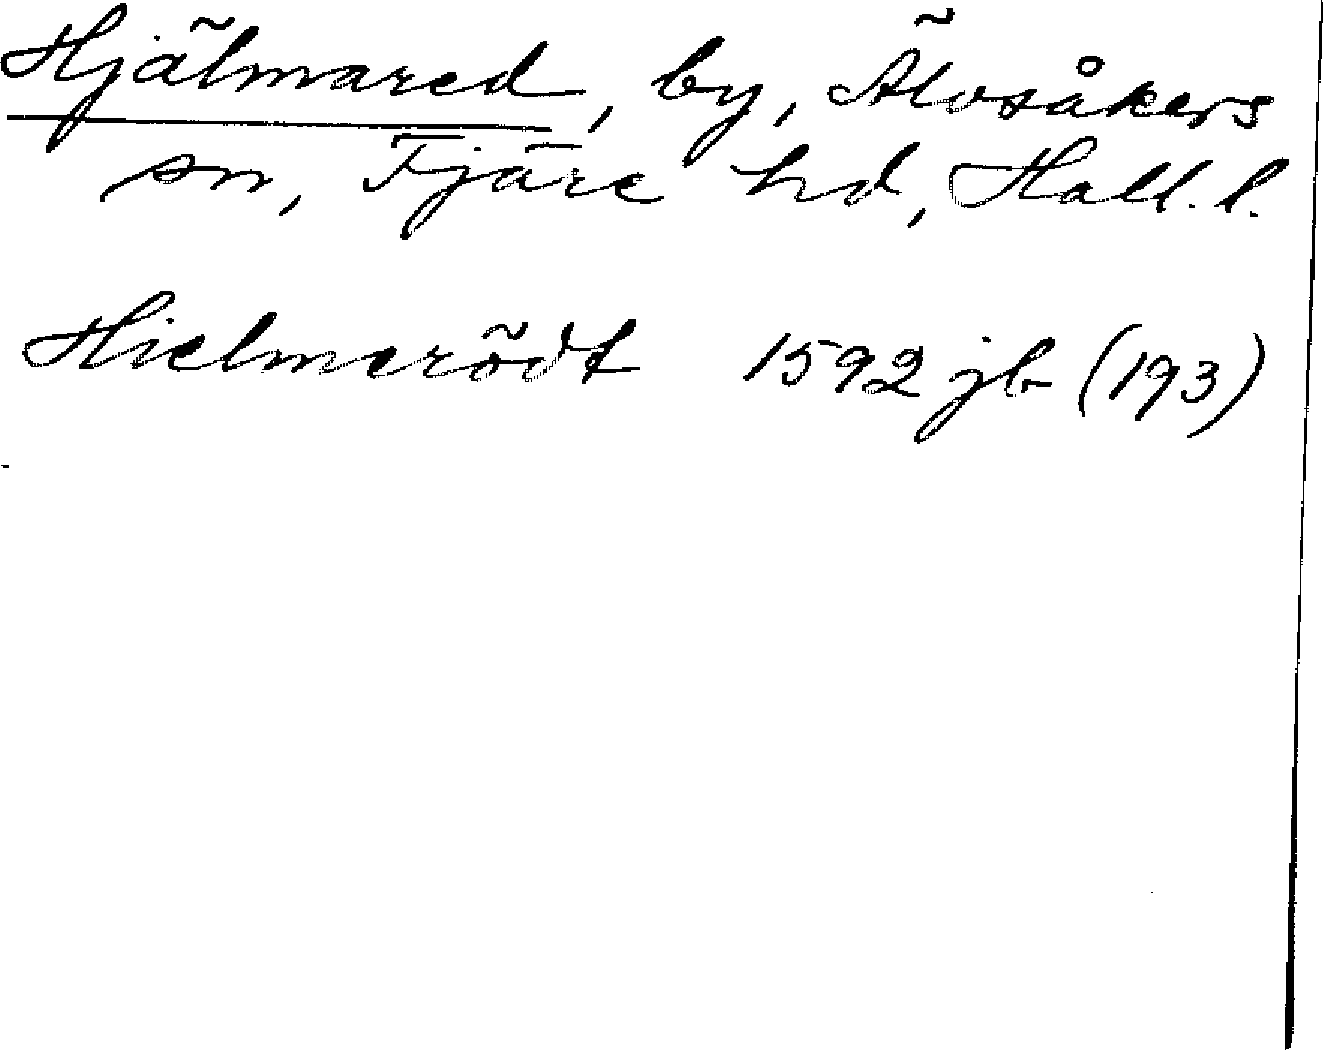 Hjälmared, by, Älvsåkers
sn, Fjäre hd, Hall. l.
Hielmerödt 1592 jb (193)